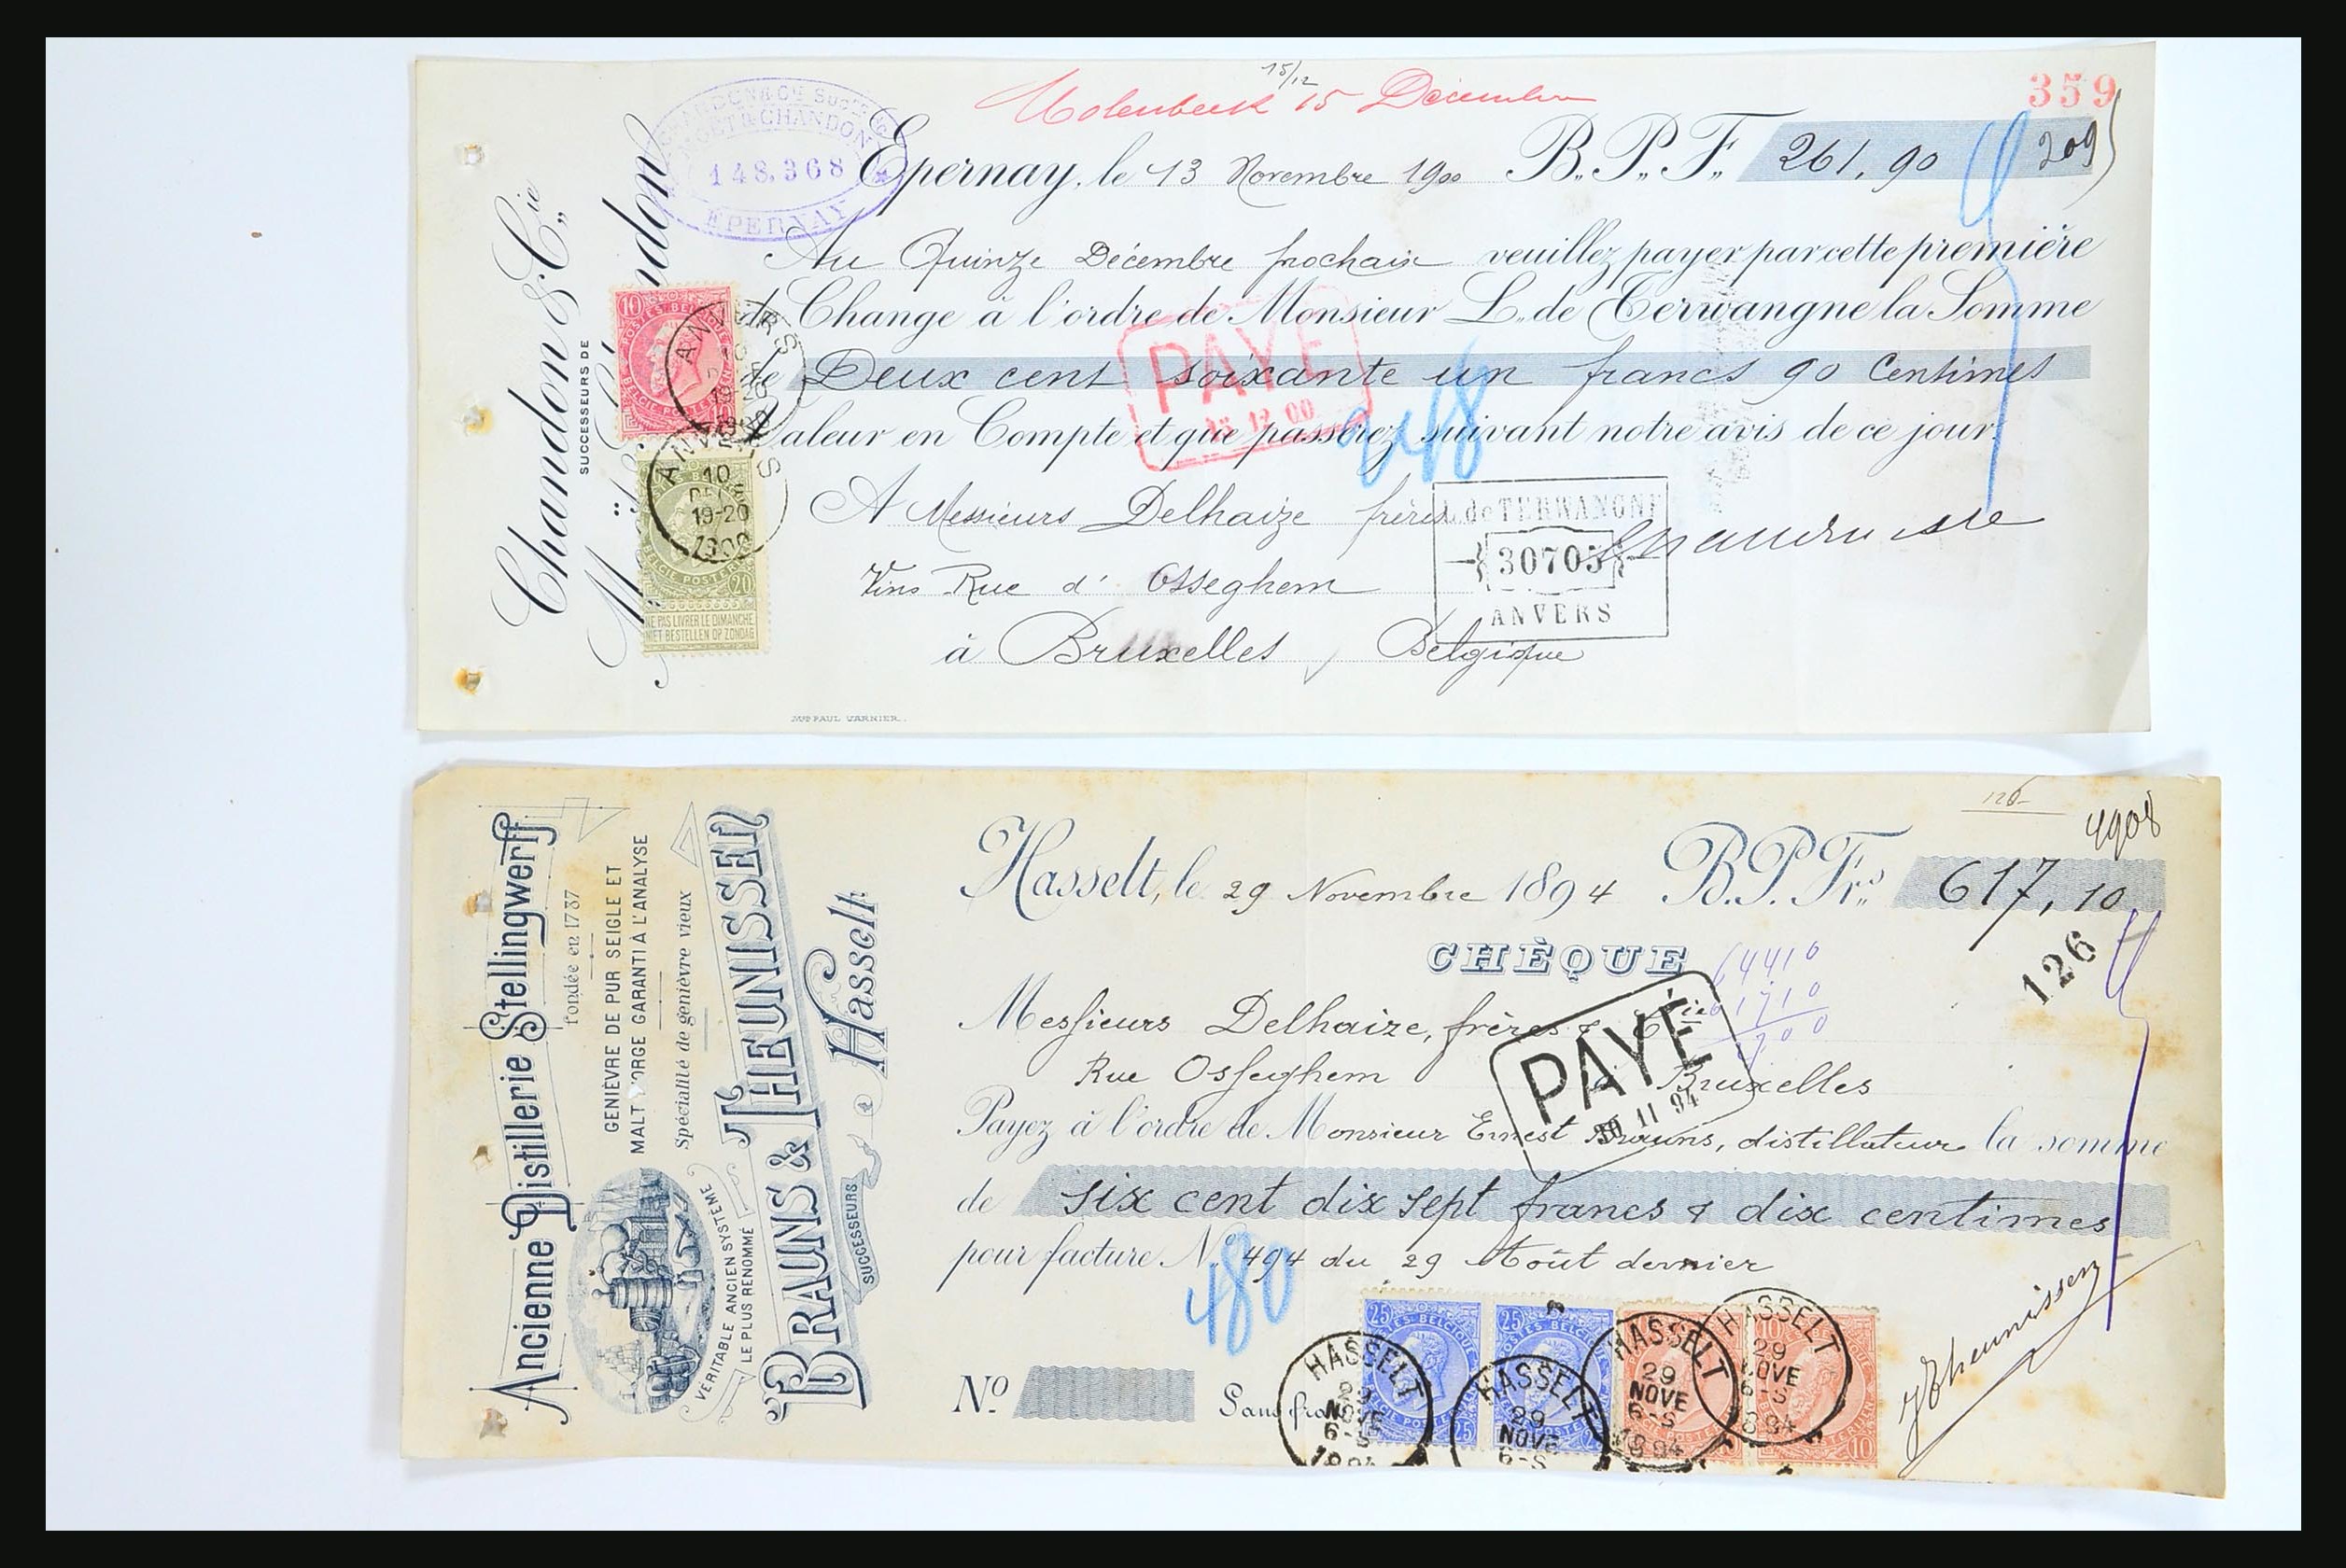 Molenbeek 15 Décembre
15/12
359
CHANDON & Cie Succrs de
MOËT & CHANDON
148.368
EPERNAY
Chandon & Cie
SUCCESSEURS DE
Epernay, le 13 Novembre 1900 B.P.F. 261,90
209
Au Quinze Décembre prochain veuillez payer par cette première
de Change à l'ordre de Monsieur L. de Terwangne la Somme
de Deux cent soixante un francs 90 Centimes
Valeur en Compte et que passerez suivant notre avis de ce jour.
PAYÉ
15 12 00
A Messieurs Delhaize frères
Vins Rue d' Osseghem
à Bruxelles, Belgique
L. de TERWANGNE
30705
ANVERS
10
POSTES BELGIQUE
BELGIE POSTERIJEN
ANVERS
10
19-20
1900
ANVERS
10
DEC
19-20
1900
BELGIE POSTERIJEN
20
NE PAS LIVRER LE DIMANCHE
NIET BESTELLEN OP ZONDAG
Ancienne Distillerie Stellingwerff
fondée en 1737
GENIÈVRE DE PUR SEIGLE ET
MALT D'ORGE GARANTI À L'ANALYSE
Spécialité de genièvre vieux
VÉRITABLE ANCIEN SYSTÈME
LE PLUS RENOMMÉ
BRAUNS & THEUNISSEN
SUCCESSEURS
Hasselt
126
4908
Hasselt, le 29 Novembre 1894 B.P.Frs. 617,10
CHÈQUE
64410
61710
2700
126
Messieurs Delhaize, frères & Cie
Rue Osseghem à Bruxelles
PAYÉ
30 11 94
Payez à l'ordre de Monsieur Ernest Brauns, distillateur la somme
de six cent dix sept francs & dix centimes
pour facture No. 494 du 29 Août dernier
480
No. Sans frais
25
POSTES BELGIQUE
BELGIE POSTERIJEN
25
25
POSTES BELGIQUE
10
HASSELT
29
NOVE
6-S
1894
HASSELT
29
NOVE
6-S
HASSELT
29
NOVE
6-S
1894
HASSELT
29
NOVE
6-S
1894
JTheunissen